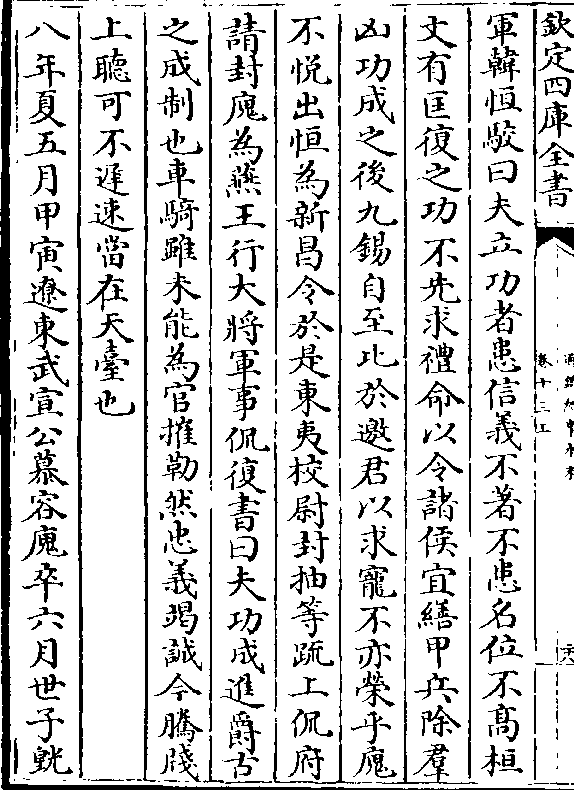 欽定四庫全書
通鑑紀事本末
卷十三上
軍韓恒駮曰夫立功者患信義不著不患名位不髙桓
文有匡復之功不先求禮命以令諸侯宜繕甲兵除羣
凶功成之後九錫自至比於邀君以求寵不亦榮乎廆
不悦出恒為新昌令於是東夷校尉封抽等疏上侃府
請封廆為燕王行大將軍事侃復書曰夫功成進爵古
之成制也車騎雖未能為官摧勒然忠義竭誠今騰牋
上聽可不遲速當在天臺也
八年夏五月甲寅遼東武宣公慕容廆卒六月世子皝